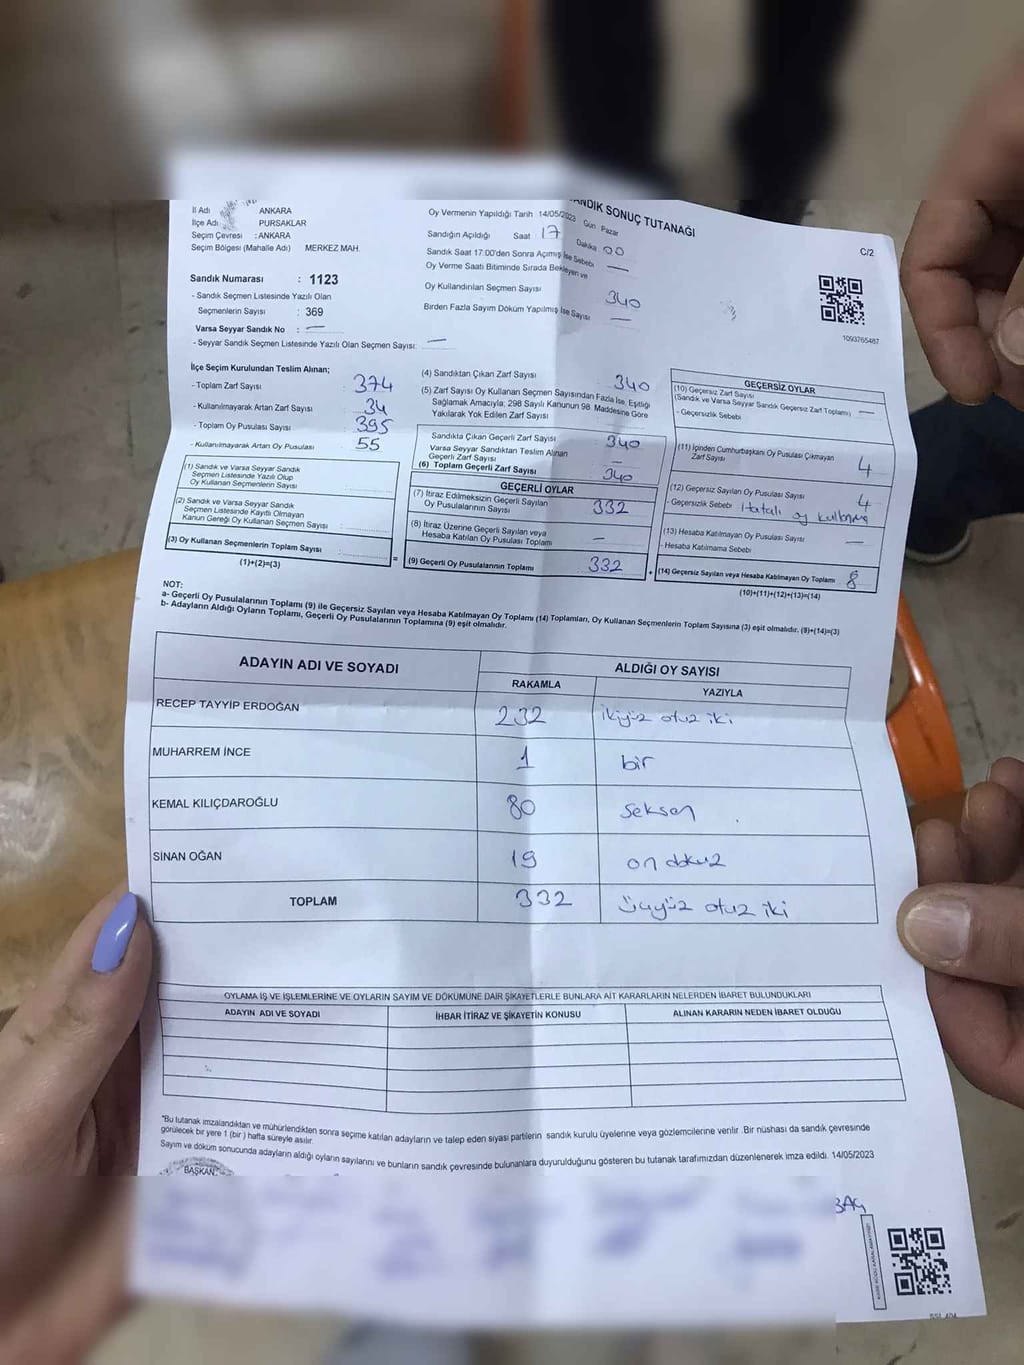 SANDIK SONUÇ TUTANAĞI
C/2
İl Adı ANKARA
İlçe Adı PURSAKLAR
Seçim Çevresi : ANKARA
Seçim Bölgesi (Mahalle Adı) MERKEZ MAH.
Sandık Numarası : 1123
- Sandık Seçmen Listesinde Yazılı Olan
Seçmenlerin Sayısı : 369
Varsa Seyyar Sandık No : —
- Seyyar Sandık Seçmen Listesinde Yazılı Olan Seçmen Sayısı: —
Oy Vermenin Yapıldığı Tarih 14/05/2023 Gün Pazar
Sandığın Açıldığı Saat 17 Dakika 00
Sandık Saat 17:00'den Sonra Açımış İse Sebebi —
Oy Verme Saati Bitiminde Sırada Bekleyen ve
Oy Kullandırılan Seçmen Sayısı 340
Birden Fazla Sayım Döküm Yapılmış İse Sayısı —
1093765487
İlçe Seçim Kurulundan Teslim Alınan;
- Toplam Zarf Sayısı 374
- Kullanılmayarak Artan Zarf Sayısı 34
- Toplam Oy Pusulası Sayısı 395
- Kullanılmayarak Artan Oy Pusulası 55
(1) Sandık ve Varsa Seyyar Sandık
Seçmen Listesinde Yazılı Olup
Oy Kullanan Seçmenlerin Sayısı :
(2) Sandık ve Varsa Seyyar Sandık
Seçmen Listesinde Kayıtlı Olmayan
Kanun Gereği Oy Kullanan Seçmen Sayısı :
(3) Oy Kullanan Seçmenlerin Toplam Sayısı :
(1)+(2)=(3)
=
(4) Sandıktan Çıkan Zarf Sayısı 340
(5) Zarf Sayısı Oy Kullanan Seçmen Sayısından Fazla İse, Eşitliği
Sağlamak Amacıyla; 298 Sayılı Kanunun 98. Maddesine Göre
Yakılarak Yok Edilen Zarf Sayısı —
Sandıkta Çıkan Geçerli Zarf Sayısı 340
Varsa Seyyar Sandıktan Teslim Alınan
Geçerli Zarf Sayısı —
(6) Toplam Geçerli Zarf Sayısı 340
GEÇERLİ OYLAR
(7) İtiraz Edilmeksizin Geçerli Sayılan
Oy Pusulalarının Sayısı 332
(8) İtiraz Üzerine Geçerli Sayılan veya
Hesaba Katılan Oy Pusulası Toplamı —
(9) Geçerli Oy Pusulalarının Toplamı 332
+
GEÇERSİZ OYLAR
(10) Geçersiz Zarf Sayısı
(Sandık ve Varsa Seyyar Sandık Geçersiz Zarf Toplamı) —
- Geçersizlik Sebebi
(11) İçinden Cumhurbaşkanı Oy Pusulası Çıkmayan
Zarf Sayısı 4
(12) Geçersiz Sayılan Oy Pusulası Sayısı 4
- Geçersizlik Sebebi Hatalı oy kullanma
(13) Hesaba Katılmayan Oy Pusulası Sayısı —
- Hesaba Katılmama Sebebi
(14) Geçersiz Sayılan veya Hesaba Katılmayan Oy Toplamı 8
(10)+(11)+(12)+(13)=(14)
NOT:
a- Geçerli Oy Pusulalarının Toplamı (9) ile Geçersiz Sayılan veya Hesaba Katılmayan Oy Toplamı (14) Toplamları, Oy Kullanan Seçmenlerin Toplam Sayısına (3) eşit olmalıdır. (9)+(14)=(3)
b- Adayların Aldığı Oyların Toplamı, Geçerli Oy Pusulalarının Toplamına (9) eşit olmalıdır.
ADAYIN ADI VE SOYADI ALDIĞI OY SAYISI
RAKAMLA YAZIYLA
RECEP TAYYİP ERDOĞAN 232 ikiyüz otuz iki
MUHARREM İNCE 1 bir
KEMAL KILIÇDAROĞLU 80 seksen
SİNAN OĞAN 19 on dokuz
TOPLAM 332 üçyüz otuz iki
OYLAMA İŞ VE İŞLEMLERİNE VE OYLARIN SAYIM VE DÖKÜMÜNE DAİR ŞİKAYETLERLE BUNLARA AİT KARARLARIN NELERDEN İBARET BULUNDUKLARI
ADAYIN ADI VE SOYADI İHBAR İTİRAZ VE ŞİKAYETİN KONUSU ALINAN KARARIN NEDEN İBARET OLDUĞU
"Bu tutanak imzalandıktan ve mühürlendikten sonra seçime katılan adayların ve talep eden siyasi partilerin sandık kurulu üyelerine veya gözlemcilerine verilir .Bir nüshası da sandık çevresinde
görülecek bir yere 1 (bir ) hafta süreyle asılır.
Sayım ve döküm sonucunda adayların aldığı oyların sayılarını ve bunların sandık çevresinde bulunanlara duyurulduğunu gösteren bu tutanak tarafımızdan düzenlenerek imza edildi. 14/05/2023
BAŞKAN